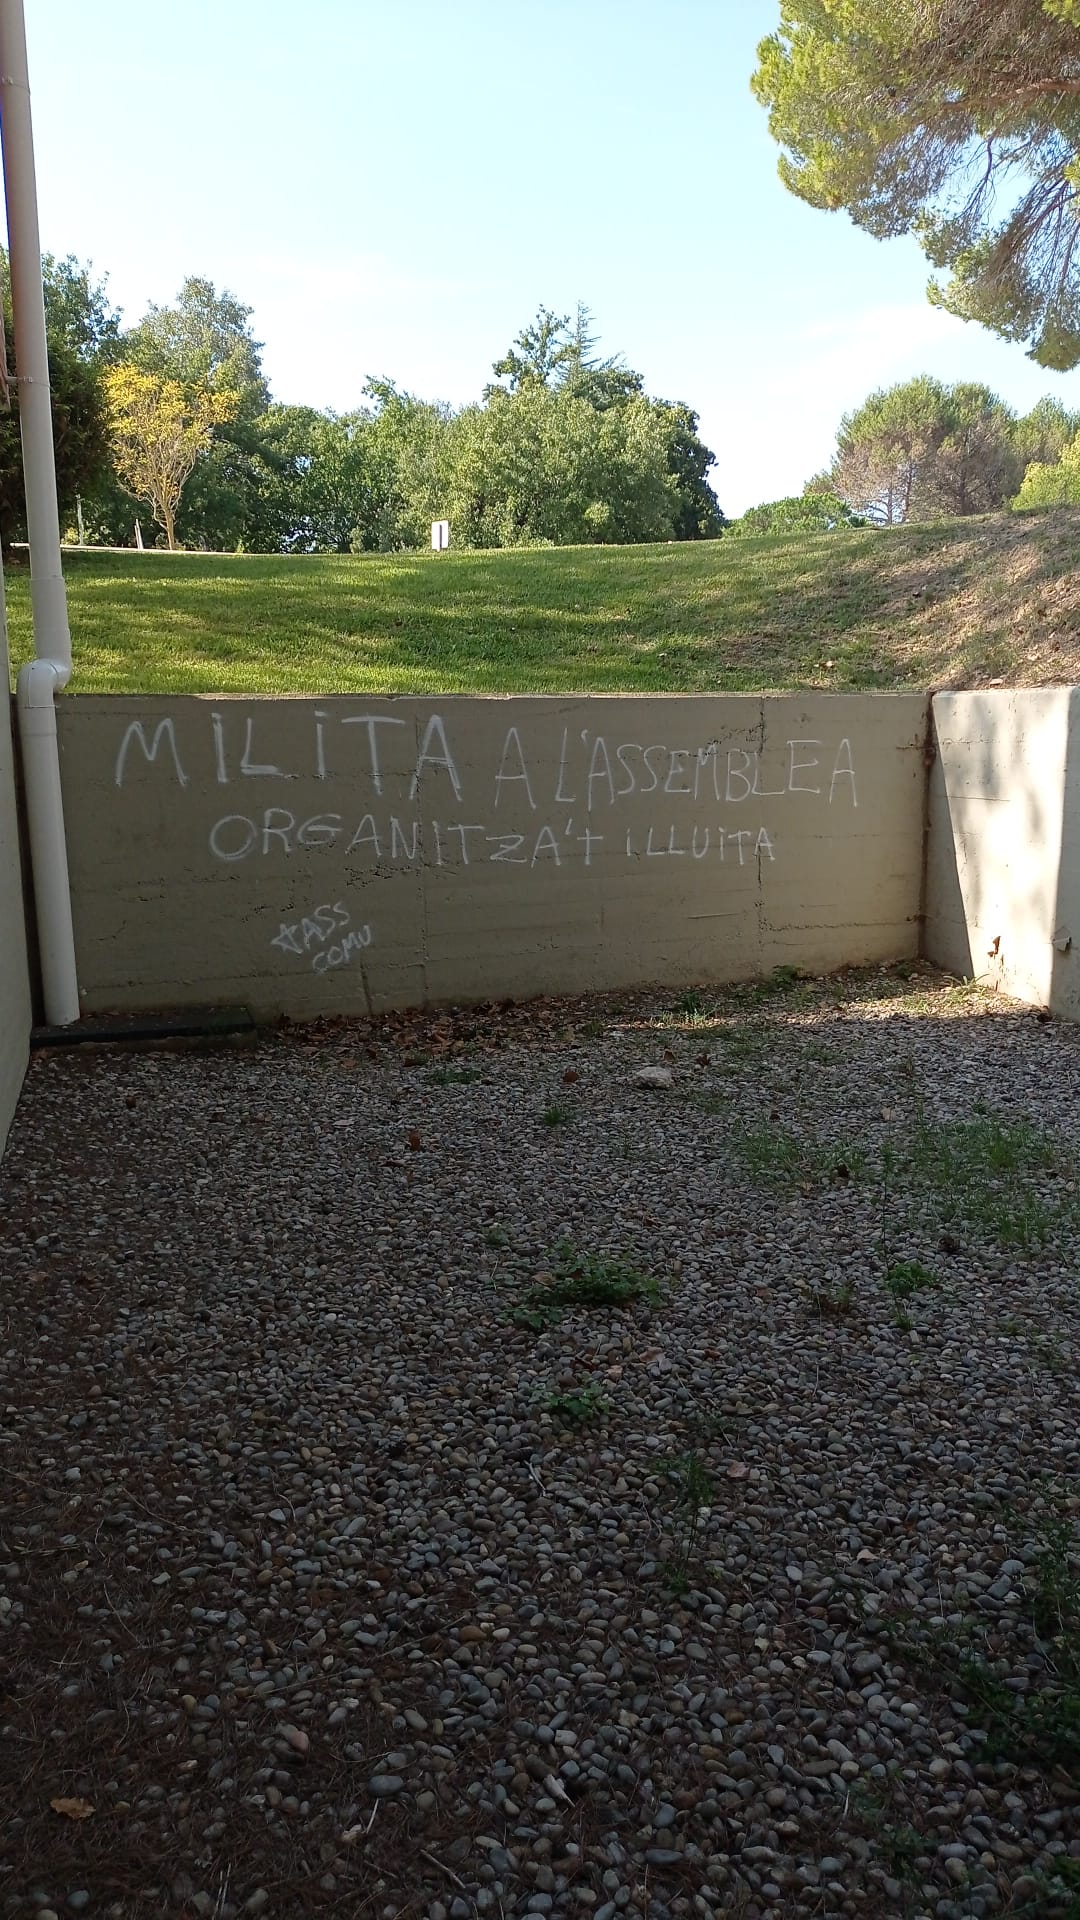 MILITA A L'ASSEMBLEA
ORGANITZA'T I LLUITA
☆ASS
COMU